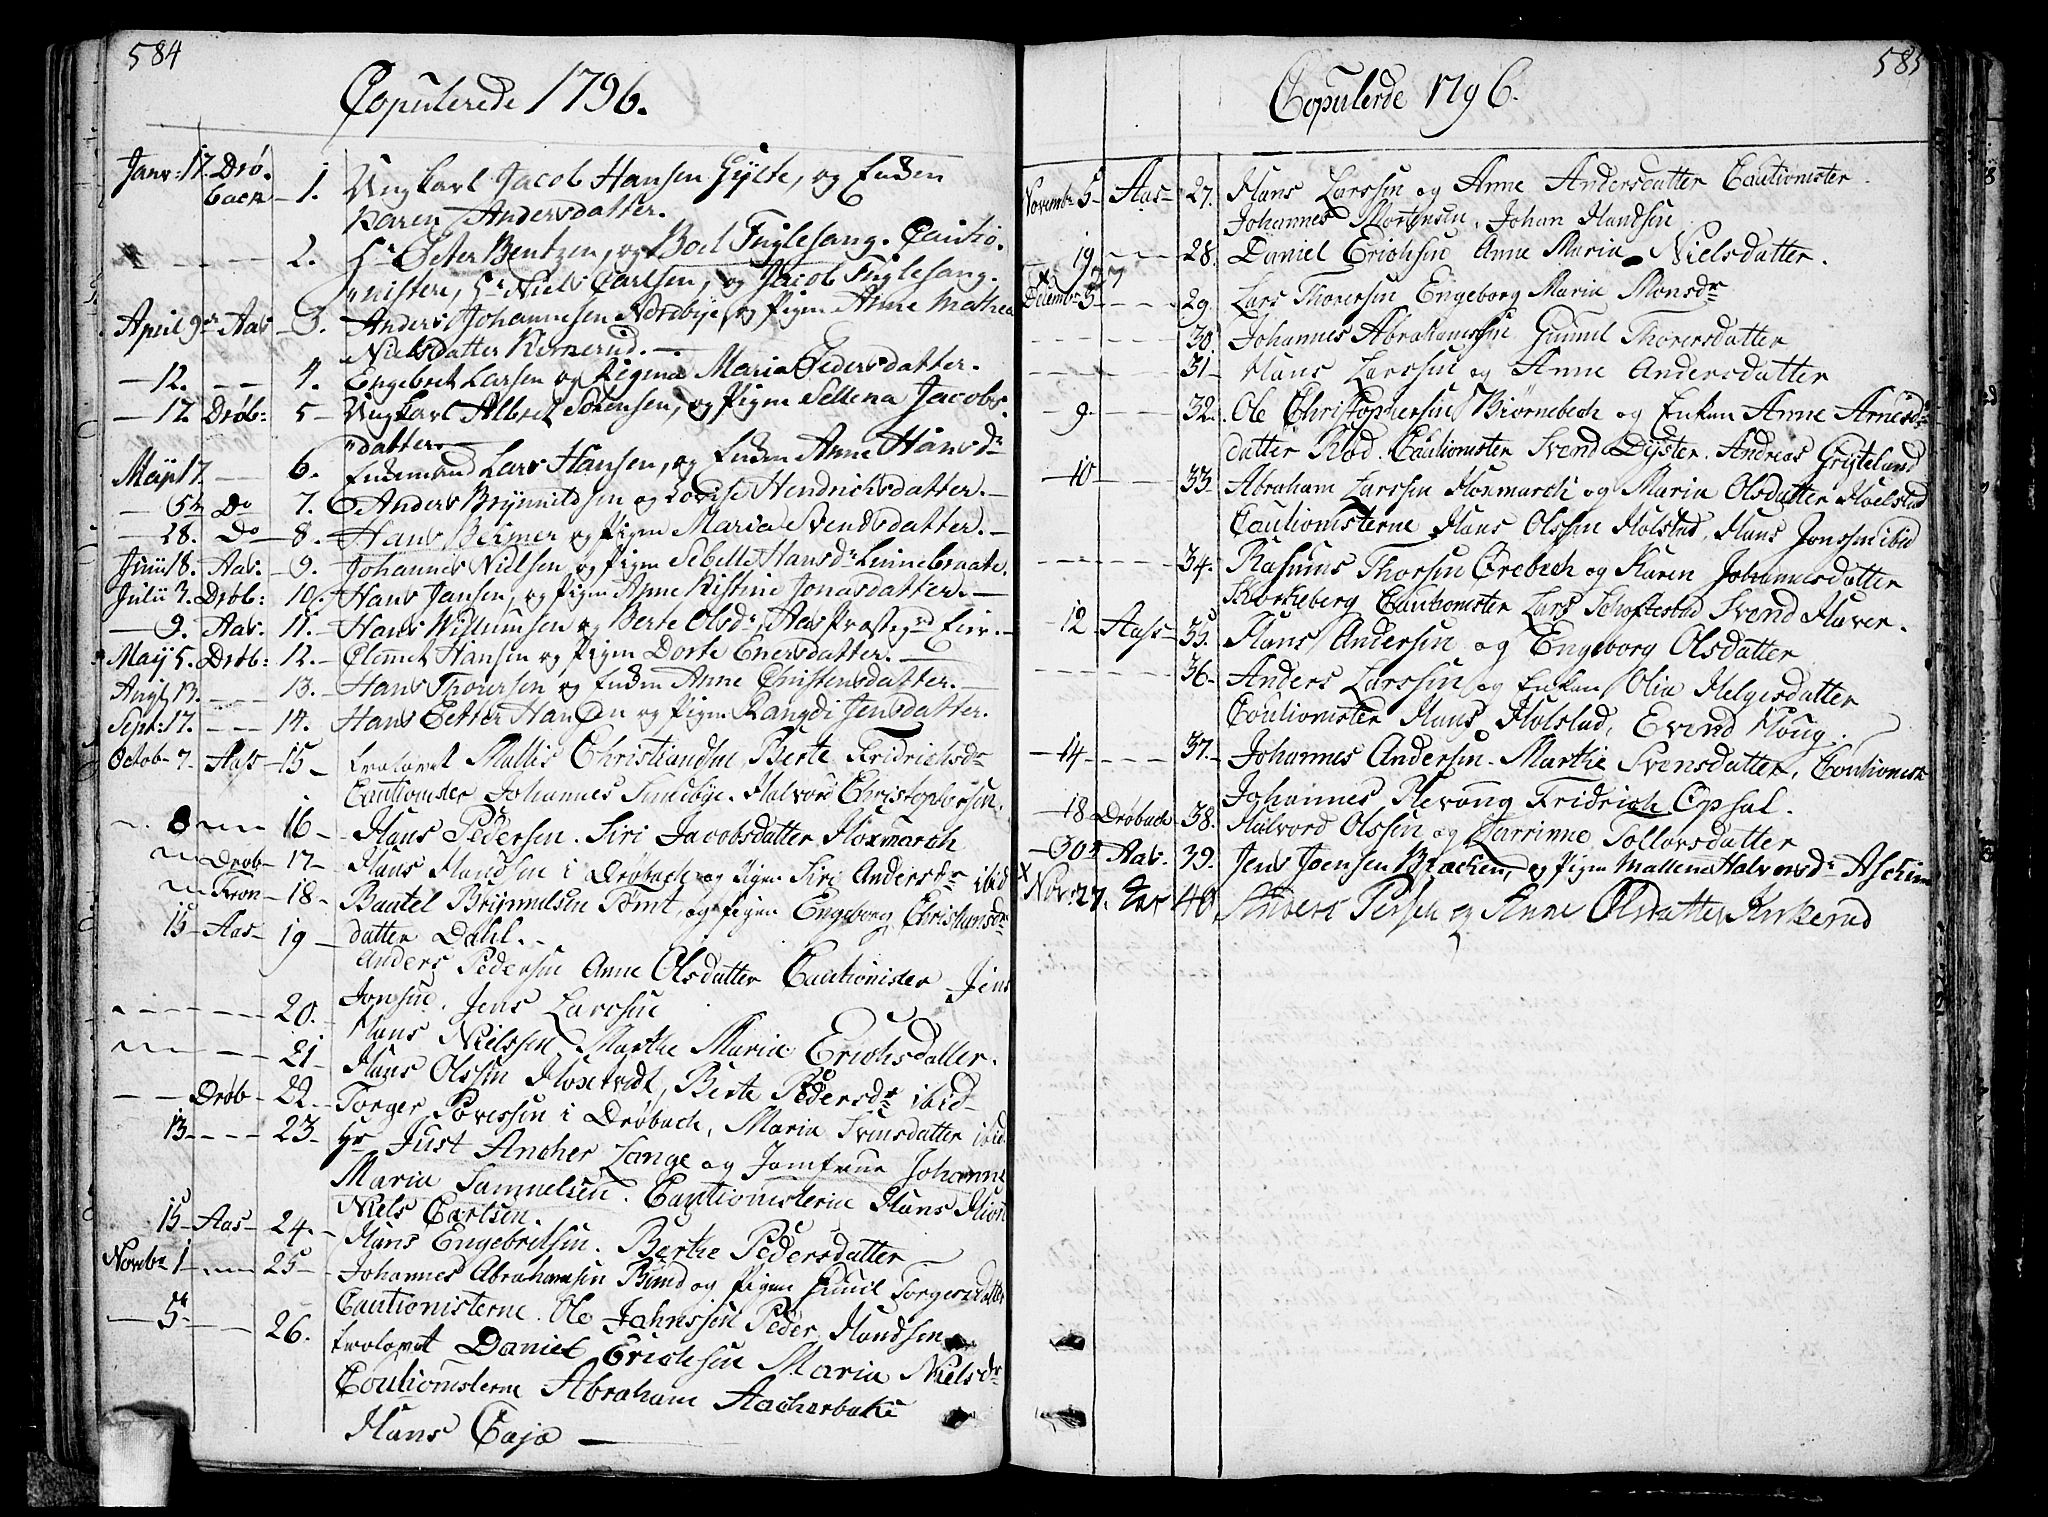 584
Copulerede 1796.
Janv: 17. Drö-
back - 1. Ungkarl Jacob Hansen Gylte, og Enken
Karen Andersdatter.
2. Hr Peter Bentzen, og Boel Fuglesang. Cautio-
nistere, Hr Niels Carlsen, og Jacob Fuglesang.
April 9de Aas - 3. Anders Johannesen Nordbye, og Pigen Anne Mathea
Nielsdatter Kirkerud.
- 12. - - 4. Engebret Larsen og Pigen Maria Pedersdatter.
- 17. Dröb: 5 - Ungkarl Albret Sörensen, og Pigen Sellena Jacobs-
datter.
Meji 17. - - 6. Enkemand Lars Hansen, og Enken Anne Hansdr
- 5te Do 7. Anders Brynnildsen og Lovise Hendrichsdatter. -
- 28. Do - 8. - Hans Beimer og Pigen Maria Svendsdatter. -
Junii 8. Aas. - 9. - Johannes Nielsen, og Pigen Sebelle Hansdr Linnebraate.
Julii 3. Dröb: 10. - Hans Jansen, og Pigen Anne Kistine Jonasdatter. -
- 9. Aas. 11. - Hans Willumsen og Berte Olsdr, Aas Præstegrd Eier. -
May 5. Dröb: 12. - Clemmet Hansen og Pigen Dorte Enersdatter. -
Augt 13. - - 13. - Hans Thorersen og Enken Anne Christensdatter. -
Sept: 17. - - 14. Hans Petter Hansen og Pigen Rangdi Jensdatter.
Octob - 7. Aas - 15 - trolovet Mattis Christiandsen Berte Fridrichsdr
Cautionister Johannes Sundbÿe. Halvord Christophersen.
8 - - 16 - Hans Pedersen. Siri Jacobsdatter Hoxmarch
- Dröb - 17 - Hans Handsen i Dröbach og Pigen Siri Andersdr ibid
- Kron - 18 - Bautel Brynnelsen Tomt, og Pigen Engeborg Christiansdr
datter Dahl.
15 - Aas - 19 - Anders Pedersen Anne Olsdatter Cautionister Jens
Jonsen. Jens Larssen
- - - - 20. Hans Nielssen Marthe Maria Erichsdatter.
- - - 21 - Hans Olssen Hoxtvedt, Berte Pedersdr ibid
- - Dröb - 22 - Torger Povelssen i Dröbach, Maria Svensdatter ibid
13 - - - 23 - Hr Just Ancher Lange og Jomfrue Johanne
Maria Samuelsen. Cautionisterne Hans
Niels Carlsen.
15 - Aas - 24. - Hans Engebretsen. Berthe Pedersdatter
Novbr 1 - - 25 - Johannes Abrahamsen Bund og Pigen Gunil Torgersdatter
Cautionisterne. Ole Johnssen Peder Handsen
- 5te - - 26. trolovet Daniel Erichsen Maria Nielsdr
Coutionisterne Abraham Aacherbake
Hans Caja -
585
Copulerde 1796.
Novembr 5 - Aas - 27. Hans Larssen og Anne Andersdatter Cautionister
Johannes Mortensen, Johan Handsen
19 - - - 28. Daniel Erichsen Anne Maria Nielsdatter.
x
Decembr 3 - - - 29. Lars Thorersen Engeborg Maria Monsdr
- - - 30. Johannes Abrahamssen Gunnil Thorersdatter
- - - 31 - Hans Larssen og Anne Andersdatter
- 9 - - - 32. Ole Christophersen Biørnebech og Enken Anne Arnesdr
datter Röd. Cautionister Svend Dÿster. Andreas Gristeland
- 10 - - 33 - Abraham Larssen Hoxmarch og Maria Olsdatter Hoelstad
Cautionisterne Hans Olssen Holstad, Hans Jonssen ibid
- - - - 34. Rasmus Thorsen Örebech og Karen Johannesdatter
Skorkeberg Cautionister Lars Schoftestad Svend Haver.
- 12 - Aass - 35. Hans Andersen og Engeborg Olsdatter
- - - - 36 - Anders Larssen og Enken Olia Helgesdatter
Coutionister Hans Holstad, Evend Houg.
- 14 - - - 37. Johannes Andersen - Marthe Svensdatter, Coutionister
Johannes Revoug Fridrich Opsal.
- 18 - Dröbach - 38. Halvord Olssen og Carrinne Tollovsdatter
- 30te Aas. 39. Jens Joensen Brachen, og Pigen Mallena Halvorsdr Aschim
x
Nov: 27. Aas 40 Anders Persen og Anne Olsdatter Kirkerud